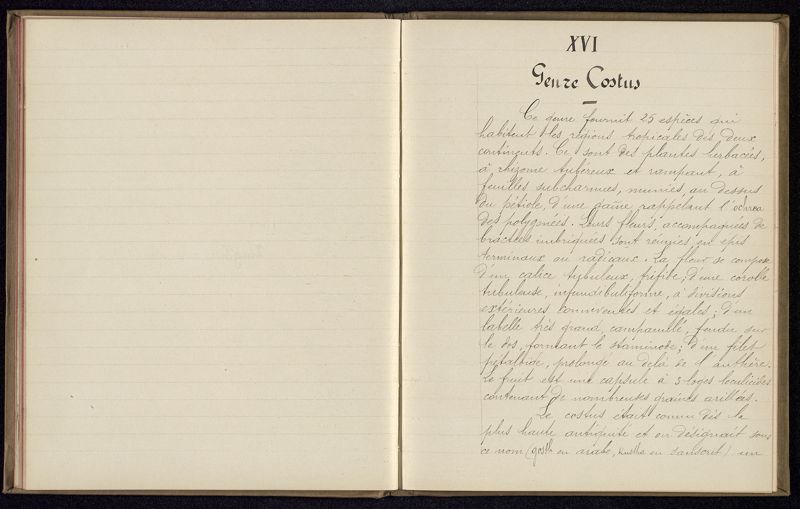 XVI
Genre Costus
Ce genre fournit 25 espèces qui
habitent les régions tropicales des deux
continents. Ce sont des plantes herbacées,
à rhizome tubéreux et rampant, à
feuilles subcharnues, munies, au dessus
du pétiole, d'une gaîne rappelant l'ochrea
des polygonées. Leurs fleurs, accompagnées de
bractées imbriquées sont réunies en épis
terminaux ou radicaux. La fleur se compose
d'un calice tubuleux, trifide; d'une corolle
tubuleuse, infundibuliforme, à divisions
extérieures conniventes et égales; d'un
labelle très grand, campanulé, fendu sur
le dos, formant le staminode; d'une filet
pétaloïde, prolongé au delà de l'anthère.
Le fruit est une capsule à 3 loges loculicides
contenant de nombreuses graines arillées.
Le costus était connu dès la
plus haute antiquité et on désignait sous
ce nom (gosth en arabe, en sanscrit) un